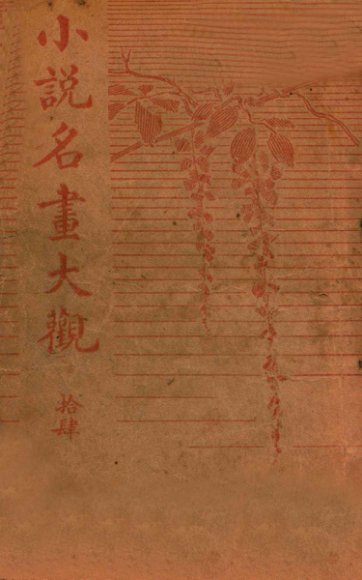 小說名畫大觀
拾肆